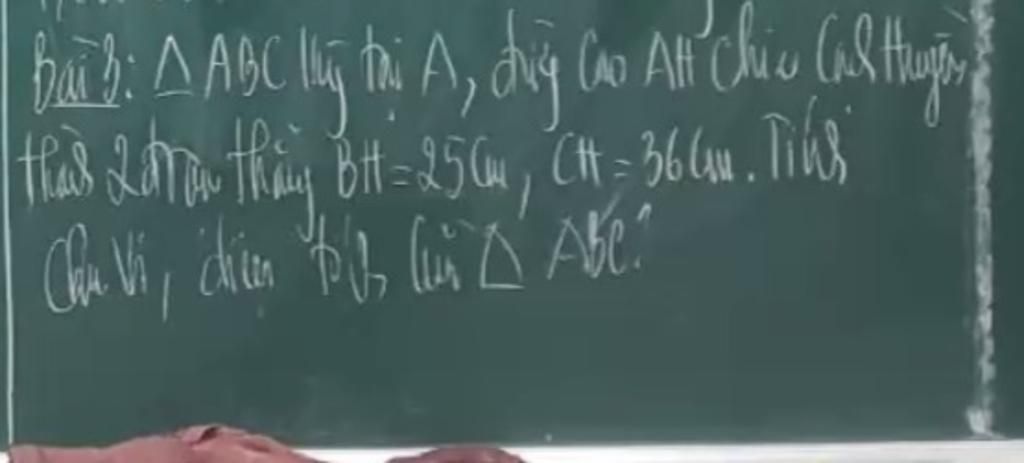 Bài 3: Δ ABC vg tại A, đường cao AH chia cạnh huyền
thành 2 đoạn thẳng BH = 25cm, CH = 36cm. Tính
chu vi, diện tích của Δ ABC?